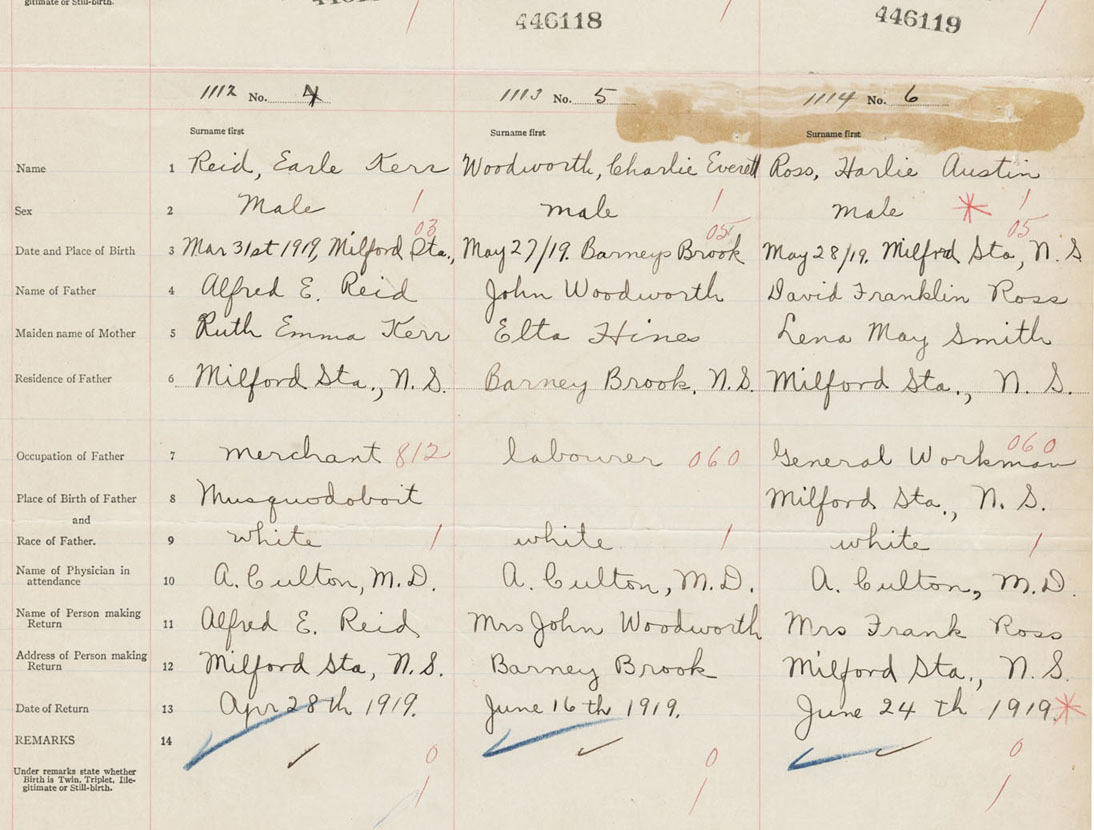 gitimate or Still-birth.
446118
446119
1112 No. 4
1113 No. 5
1114 No. 6
Surname first
Surname first
Surname first
Name 1 Reid, Earle Kerr Woodworth, Charlie Everett Ross, Harlie Austin
Sex 2 Male 1 male 1 male * 1
03 05 05
Date and Place of Birth 3 Mar 31st 1919, Milford Sta., May 27/19. Barneys Brook May 28/19. Milfrd Sta, N. S
Name of Father 4 Alfred E. Reid John Woodworth David Franklin Ross
Maiden name of Mother 5 Ruth Emma Kerr Elta Hines Lena May Smith
Residence of Father 6 Milford Sta., N. S. Barney Brook, N. S. Milford Sta., N. S.
Occupation of Father 7 merchant 812 labourer 060 General Workman 060
Place of Birth of Father 8 Musquodoboit Milford Sta., N. S.
and
Race of Father. 9 white 1 white 1 white 1
Name of Physician in
attendance 10 A. Culton, M.D. A. Culton, M.D. A. Culton, M.D.
Name of Person making
Return 11 Alfred E. Reid Mrs John Woodworth Mrs Frank Ross
Address of Person making
Return 12 Milford Sta, N.S. Barney Brook Milford Sta., N. S.
Date of Return 13 Apr 28th 1919. June 16th 1919. June 24th 1919. *
REMARKS 14
0 0 0
Under remarks state whether
Birth is Twin, Triplet, Ille-
gitimate or Still-birth.
1 1 1